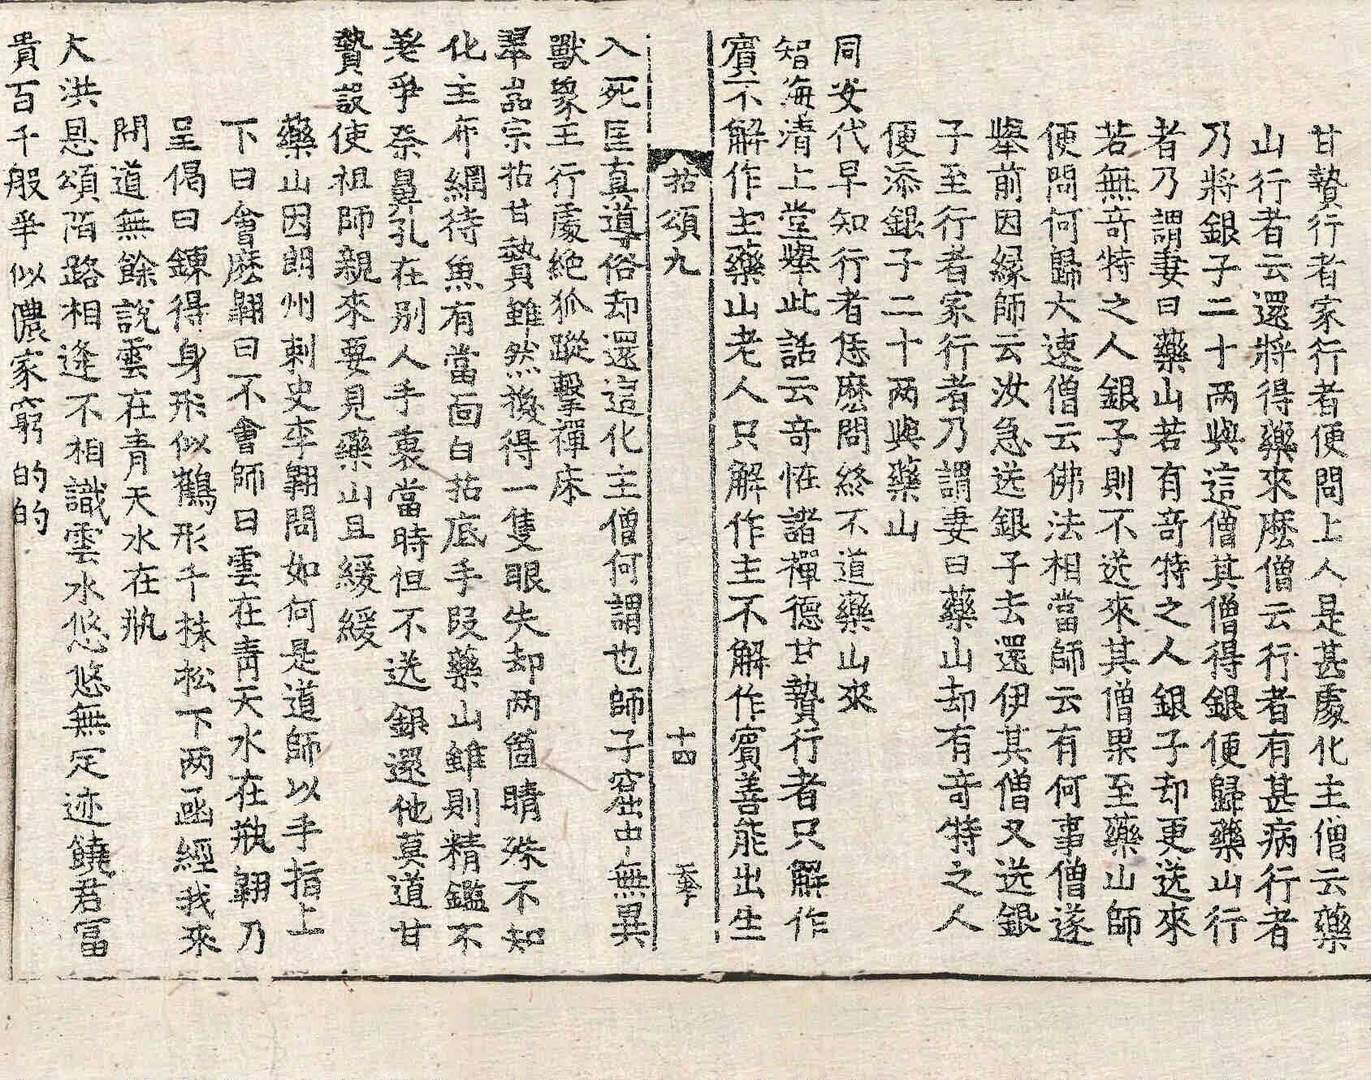 甘贄行者家行者便問上人是甚處化主僧云藥
山行者云還將得藥來麽僧云行者有甚病行者
乃將銀子二十两與這僧其僧得銀便歸藥山行
者乃謂妻曰藥山若有奇特之人銀子却更送來
若無奇特之人銀子則不送來其僧果至藥山師
便問何歸大速僧云佛法相當師云有何事僧遂
舉前因縁師云汝急送銀子去還伊其僧又送銀
子至行者家行者乃謂妻曰藥山却有奇特之人
便添銀子二十两與藥山
同安代早知行者恁麽問終不道藥山來
智海清上堂擧此話云奇恠諸禪德甘贄行者只解作
賓不解作主藥山老人只解作主不解作賓善能出生
拈頌九 十四
入死匡真導俗却還這化主僧何謂也師子窟中無異
獸象王行處絶狐蹤擊禪床
翠嵓宗拈甘贄雖然獲得一隻眼失却两箇睛殊不知
化主布綱待魚有當面白拈底手段藥山雖則精鑑不
差爭柰鼻孔在別人手裏當時但不送銀還他莫道甘
贄設使祖師親來要見藥山且緩緩
藥山因朗州刺史李翱問如何是道師以手指上
下曰會麽翱曰不會師曰雲在青天水在瓶翱乃
呈偈曰錬得身形似鶴形千株松下两函經我來
問道無餘說雲在青天水在瓶
大洪恩頌陌路相逢不相識雲水悠悠無定迹饒君冨
貴百千般爭似儂家窮的的